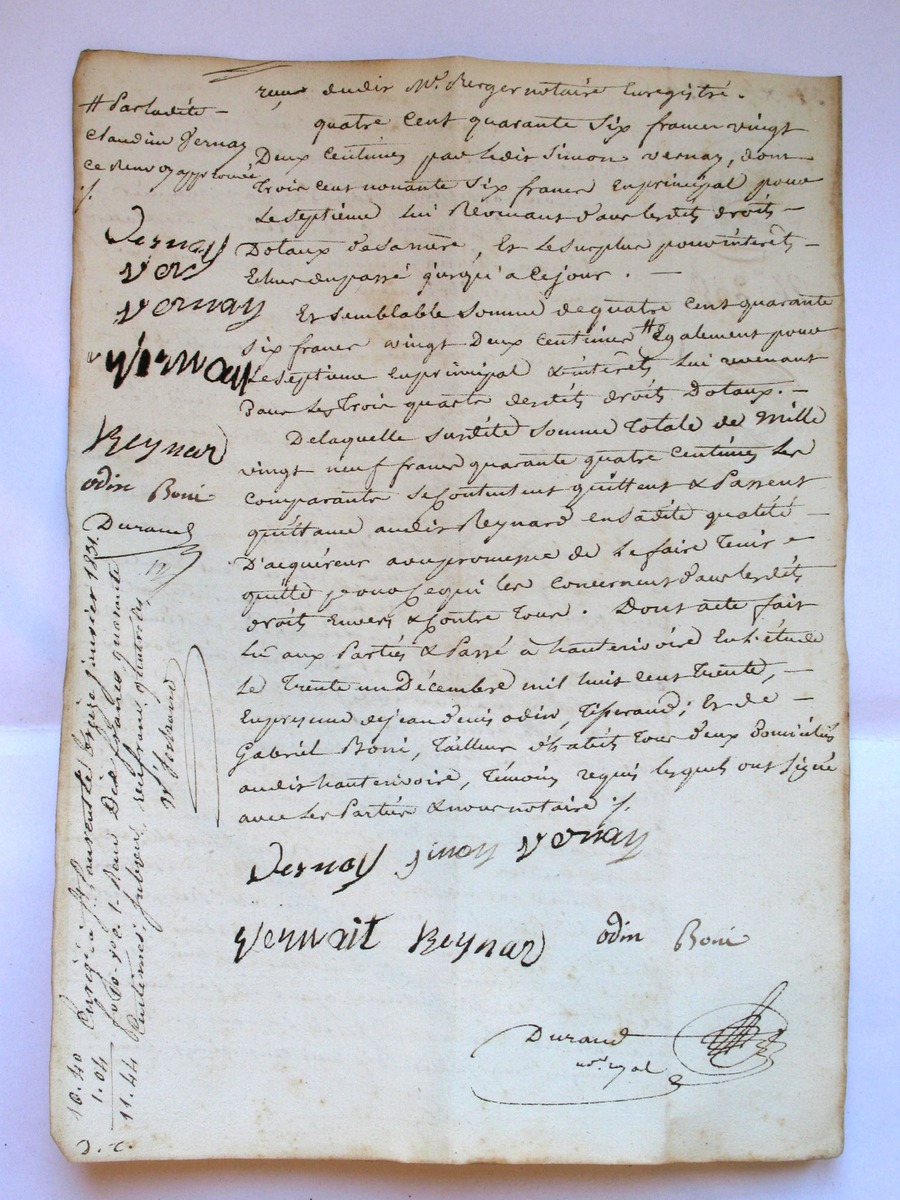 # Par ladite
Claudine Vernay
ce renvoy approuvé
Vernay
Ver
Vernay
Vernay
Reynard
odin Boni
Durand
reçu dudit Me. Berger notaire Enregistré.
quatre Cent quarante Six francs vingt
Deux Centimes par ledit Simon Vernay, dont
Trois cent nonante Six francs En principal pour
Le Septieme Lui Revenant dans lesdits droits
Dotaux de sa mère, Et le surplus pour intérêts
Echus du passé jusqu'a ce jour.
Et Semblable Somme de quatre Cent quarante
Six francs vingt Deux Centimes # Egalement pour
Le Septieme En principal & intérêts Lui revenant
Dans Les Trois quarts desdits droits Dotaux.
De laquelle Susdite Somme Totale de Mille
vingt neuf francs quarante quatre Centimes Les
Comparants Se Contentent quittent & Passent
quittance audit Reynard en sadite qualité
D'acquéreur avec promesse de Le faire Tenir
quitte pour Ce qui les Concernent dans lesdits
droits Envers & Contre Tous. Dont acte fait
Lu aux Parties & Passé à hauterivoire En L'étude
Le Trente un Décembre mil huit cent Trente,
En presence de jean denis odin, Tisserand; Et de
Gabriel Boni, Tailleur d'habits Tous deux Domiciliés
audit hauterivoire, Témoins requis lesquels ont Signé
avec Les Parties & nous notaire ./.
Vernay Simon Vernay
Vernait Reynard odin Boni
Durand
not. royal
Enrgé à St Laurent le treize janvier 1831.
fo 70. vo c. 1. Reçu Dix francs quarante
Centimes, subvon. un franc quatre c.
10.40
1.04
11.44
D. C.